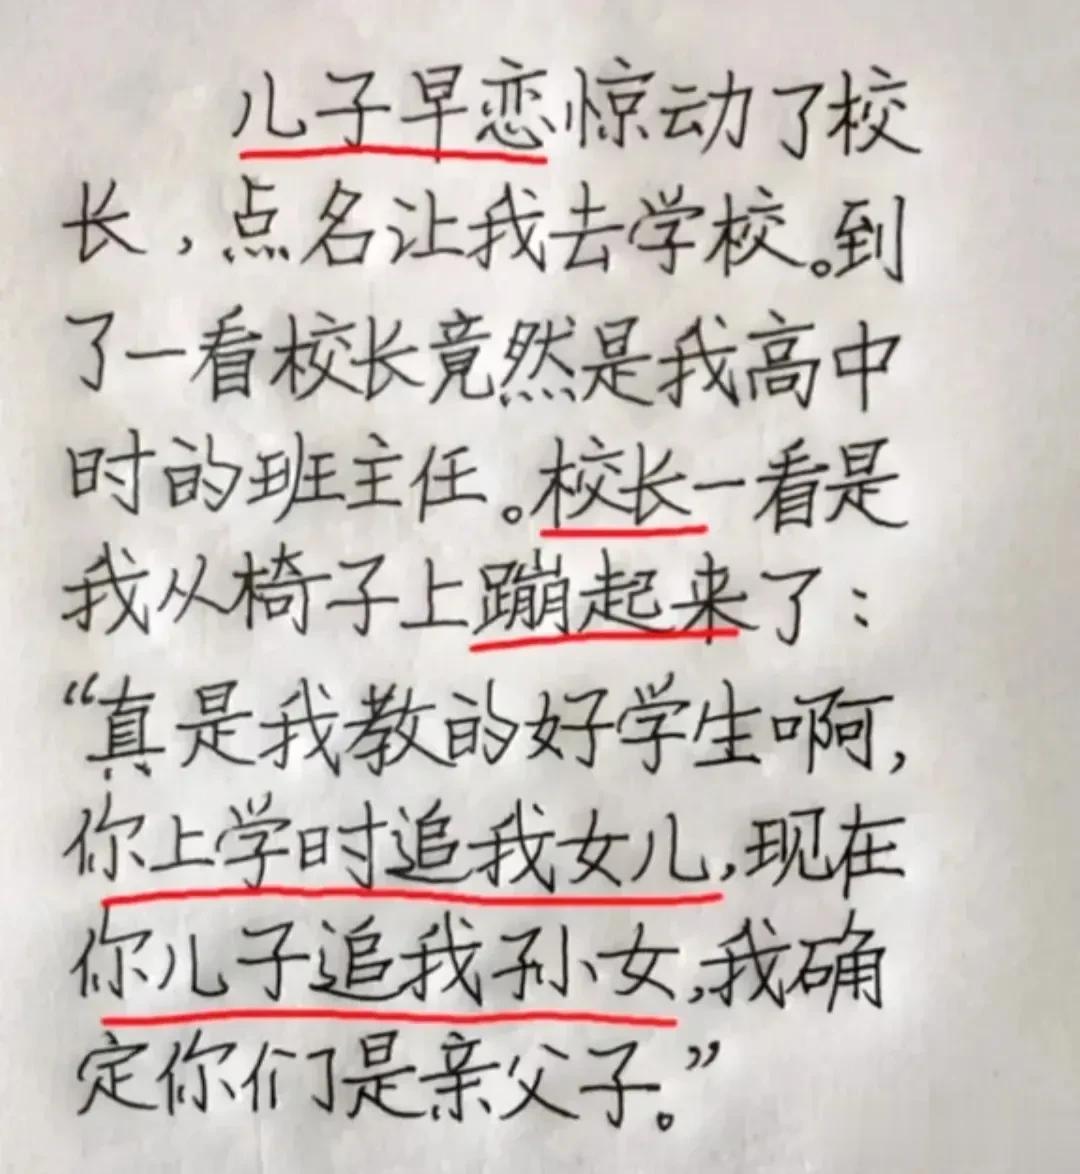 儿子早恋惊动了校
长，点名让我去学校。到
了一看校长竟然是我高中
时的班主任。校长一看是
我从椅子上蹦起来了：
“真是我教的好学生啊，
你上学时追我女儿，现在
你儿子追我孙女，我确
定你们是亲父子。”